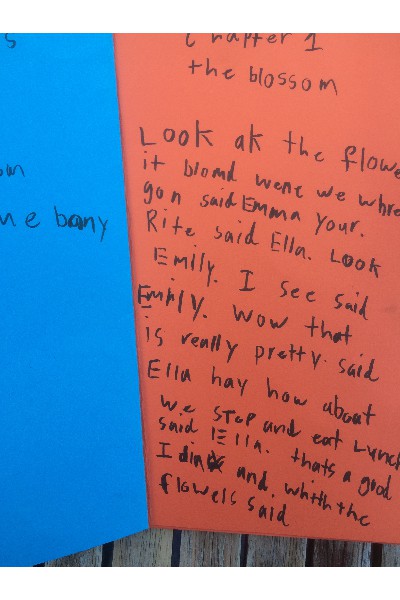 s
m
ne bany
Chapter 1
the blossom
Look ak the flowe
it blomd wene we whre
gon said Emma your.
Rite said Ella. Look
Emily. I see said
Emily. Wow that
is really pretty said
Ella hay how about
we stop and eat Lunch
said Ella. thats a good
I dia and. whith the
flowels said